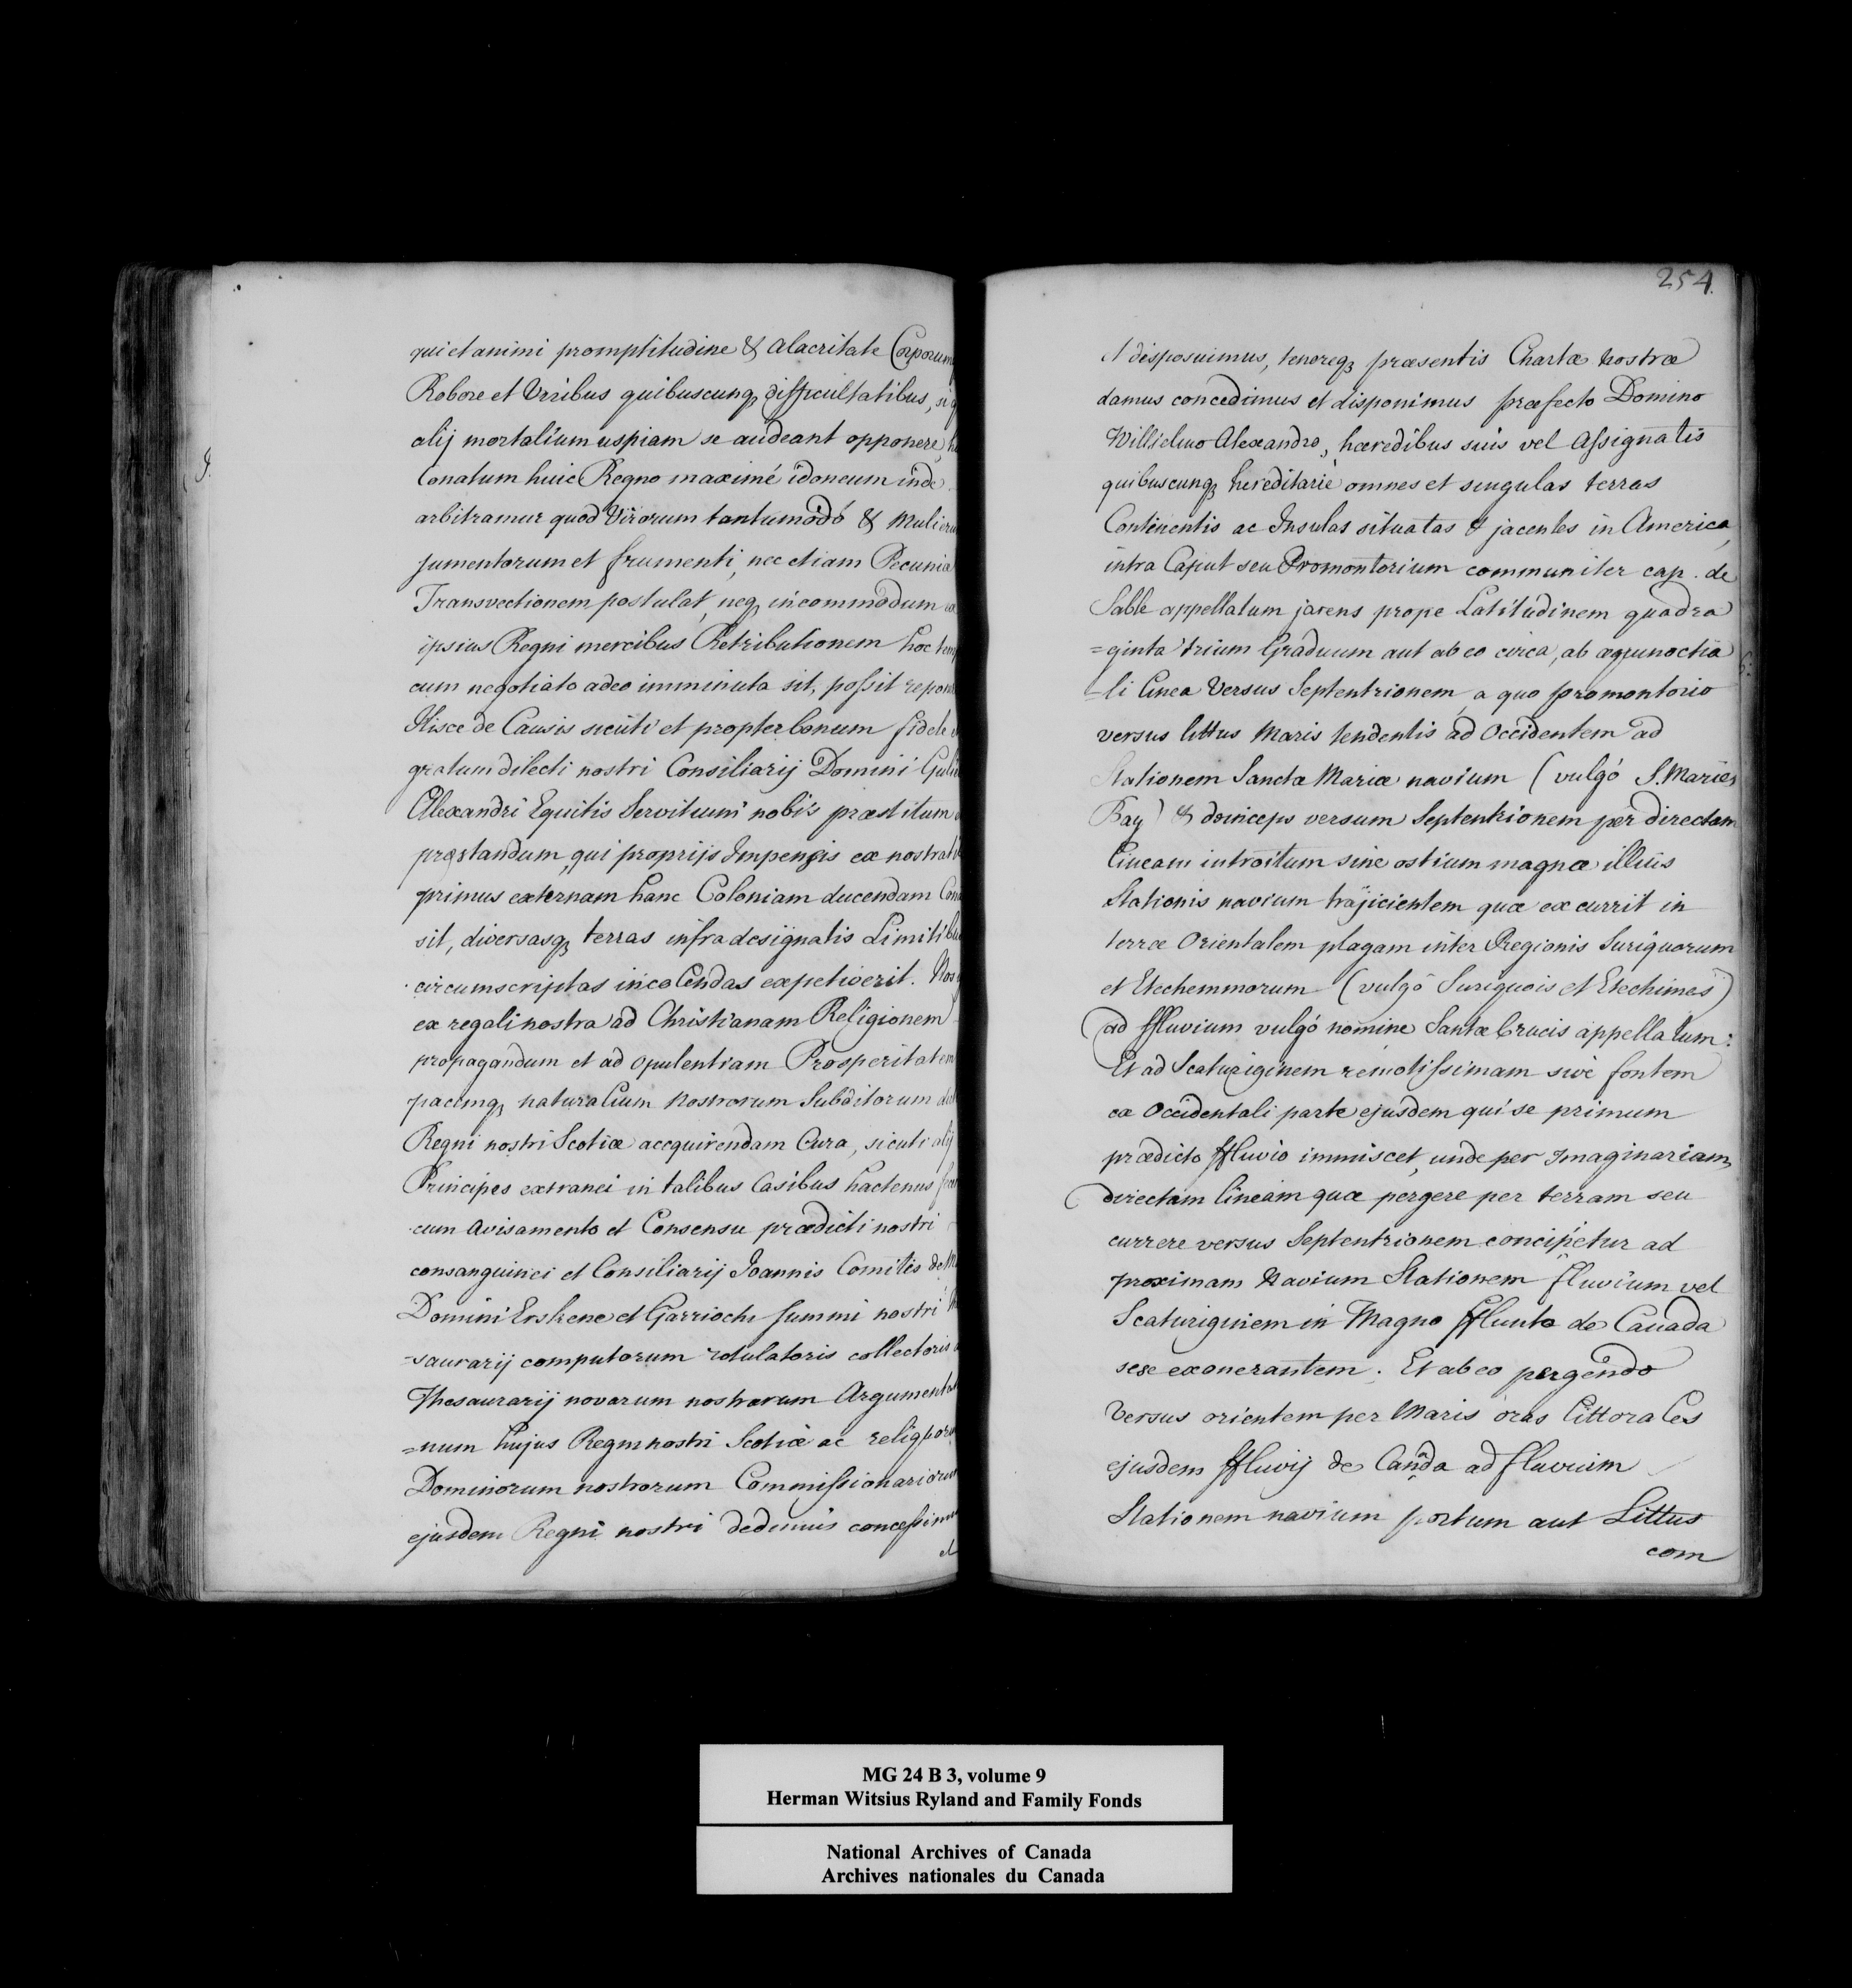 qui et animi promptitudine & alacritate Corporum
Robore et Viribus quibuscunq difficultatibus, si q
alij mortalium uspiam se audeant opponere, h
Conatum huic Regno maximé idoneum inde
arbitramur quod Virorum tantumodó & Mulieru
jumentorum et frumenti, nec etiam Pecunia
Transvectionem postulat, neq incommodum
ipsius Regni mercibus Retributionem hoc tem
cum negotiato adeo imminuta sit, possit repon
Hisce de Causis sicuti et propter bonum fidele
gratum dilecti nostri Consiliarij Domini Guli
Alexandri Equitis Servitium nobis præstitum
præstandum, qui proprijs Impensis ex nostrat
primus externam hanc Coloniam ducendam Con
sit, diversasq terras infra designatis Limitibu
circumscriptas incolendas expetiverit. Nos
ex regali nostra ad Christianam Religionem
propagandum et ad opulentiam Prosperitatem
pacemq naturalium Nostrorum Subditorum dic
Regni nostri Scotiæ accquirendam Cura, sicuti alij
Principes extranei in talibus Casibus hactenus fec
cum Avisamento et Consensu prædicti nostri
consanguinei et Consiliarij Joannis Comitis de M
Domini Erskene et Garrioch summi nostri
=saurarij computorum rotulatoris collectoris a
Thesaurarij novarum nostrarum Argumentat
=num hujus Regni nostri Scotiæ ac reliquoru
Dominorum nostrorum Commissionariorum
ejusdem Regni nostri dedimus concessimu
et
254.
et disposuimus, tenoreq præsentis Chartæ Nostræ
damus concedimus et disponimus præfecto Domino
Willielmo Alexandro, hæredibus suis vel Assignatis
quibuscunq hereditarié omnes et singulas terras
Continentis ac Insulas situatas & jacentes in America,
intra Caput seu Promontorium communiter cap. de
Sable appellatum jacens prope Latitudinem quadra
=ginta trium Graduum aut ab eo circa, ab æqunoctia
=li Linea Versus Septentrionem, a quo promontorio
versus littus Maris tendentis ad Occidentem ad
Stationem Sanctæ Mariæ navium (vulgó S. Maries
Bay) & deinceps versum Septentrionem per directam
Lineam introitum sine ostium magnæ illius
Stationis navium trajicientem quæ excurrit in
terræ Orientalem plagam inter Regionis Suriquorum
et Etechemmorum (vulgó Suriquois et Etechimes)
ad ffluvium vulgó nomine Santæ Crucis appellatum:
Et ad Scaturiginem remotissimam sive fontem
ex Occidentali parte ejusdem qui se primum
prædicto ffluvio immiscet, unde per Imaginariam
directam lineam quæ pergere per terram seu
currere versus Septentrionem concipietur ad
proximam Navium Stationem fluvium vel
Scaturiginem in Magno ffluvto de Canada
sese exonerantem. Et ab eo pergendo
Versus orientem per Maris oras Littorales
ejusdem ffluvij de Canada ad fluvium
Stationem navium portum aut Littus
com
MG 24 B 3, volume 9
Herman Witsius Ryland and Family Fonds
National Archives of Canada
Archives nationales du Canada